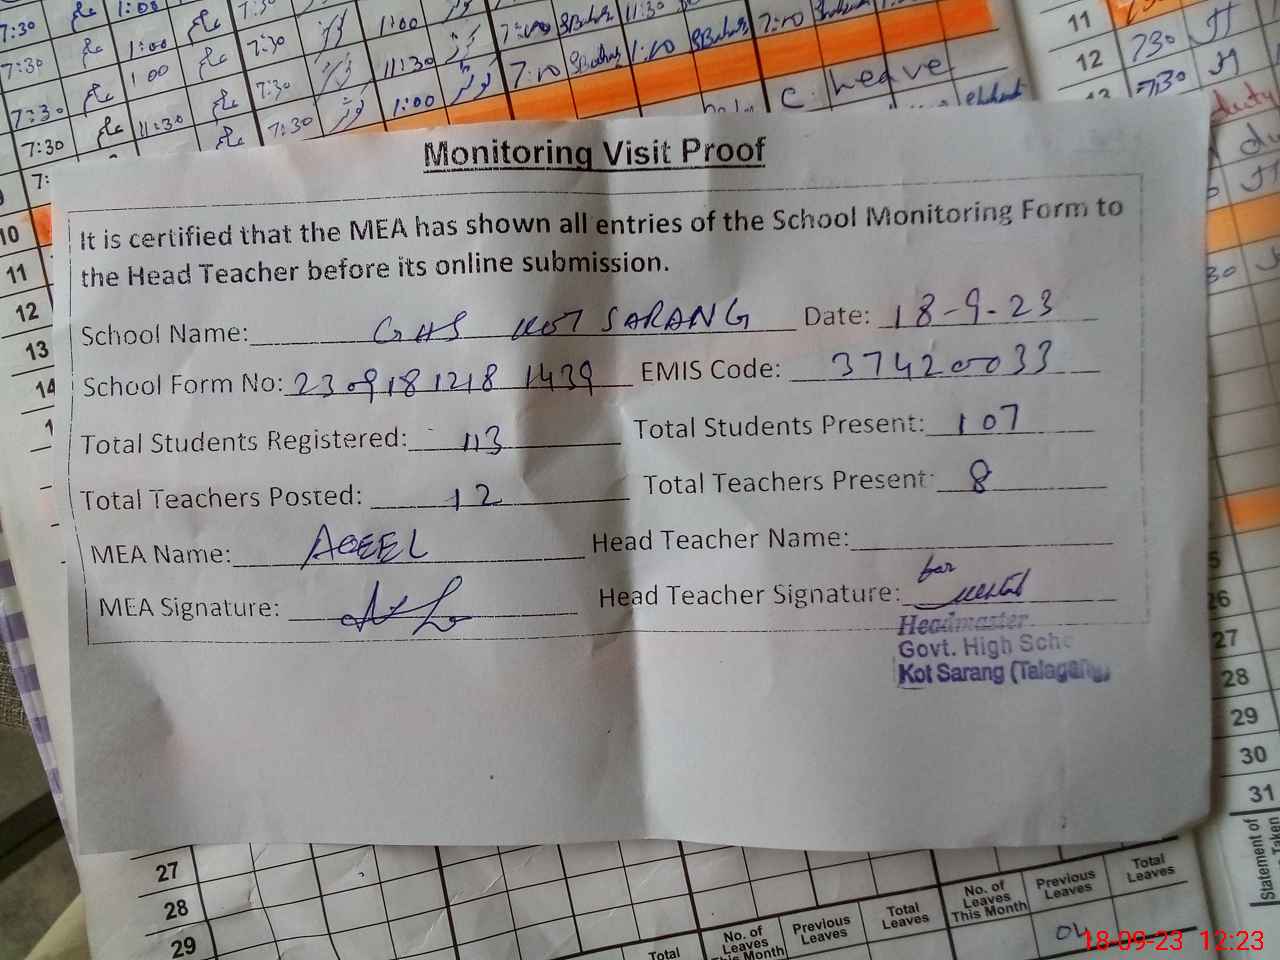 7:30 1:00 7:30
7:30 1:00 7:30 1:00 7:00 11:30
7:30 1 00 7:30 11:30 7:00 1:00 7:00
7:30 11:30 7:30 1:00 C. Leave
11
12 730
13 7:30
duty
Monitoring Visit Proof
It is certified that the MEA has shown all entries of the School Monitoring Form to
the Head Teacher before its online submission.
School Name: GHS KOT SARANG Date: 18-9-23
School Form No: 23091812181439 EMIS Code: 37420033
Total Students Registered: 113 Total Students Present: 107
Total Teachers Posted: 12 Total Teachers Present: 8
MEA Name: AQEEL Head Teacher Name:
MEA Signature: Head Teacher Signature: for
Headmaster
Govt. High Scho
Kot Sarang (Talagang)
10
11
12
13
14
26
27
28
29
30
31
Statement of
Taken
27
28
29
Total
No. of Leaves This Month
Previous Leaves
Total Leaves
No. of Leaves This Month
Previous Leaves
Total Leaves
04
18-09-23 12:23